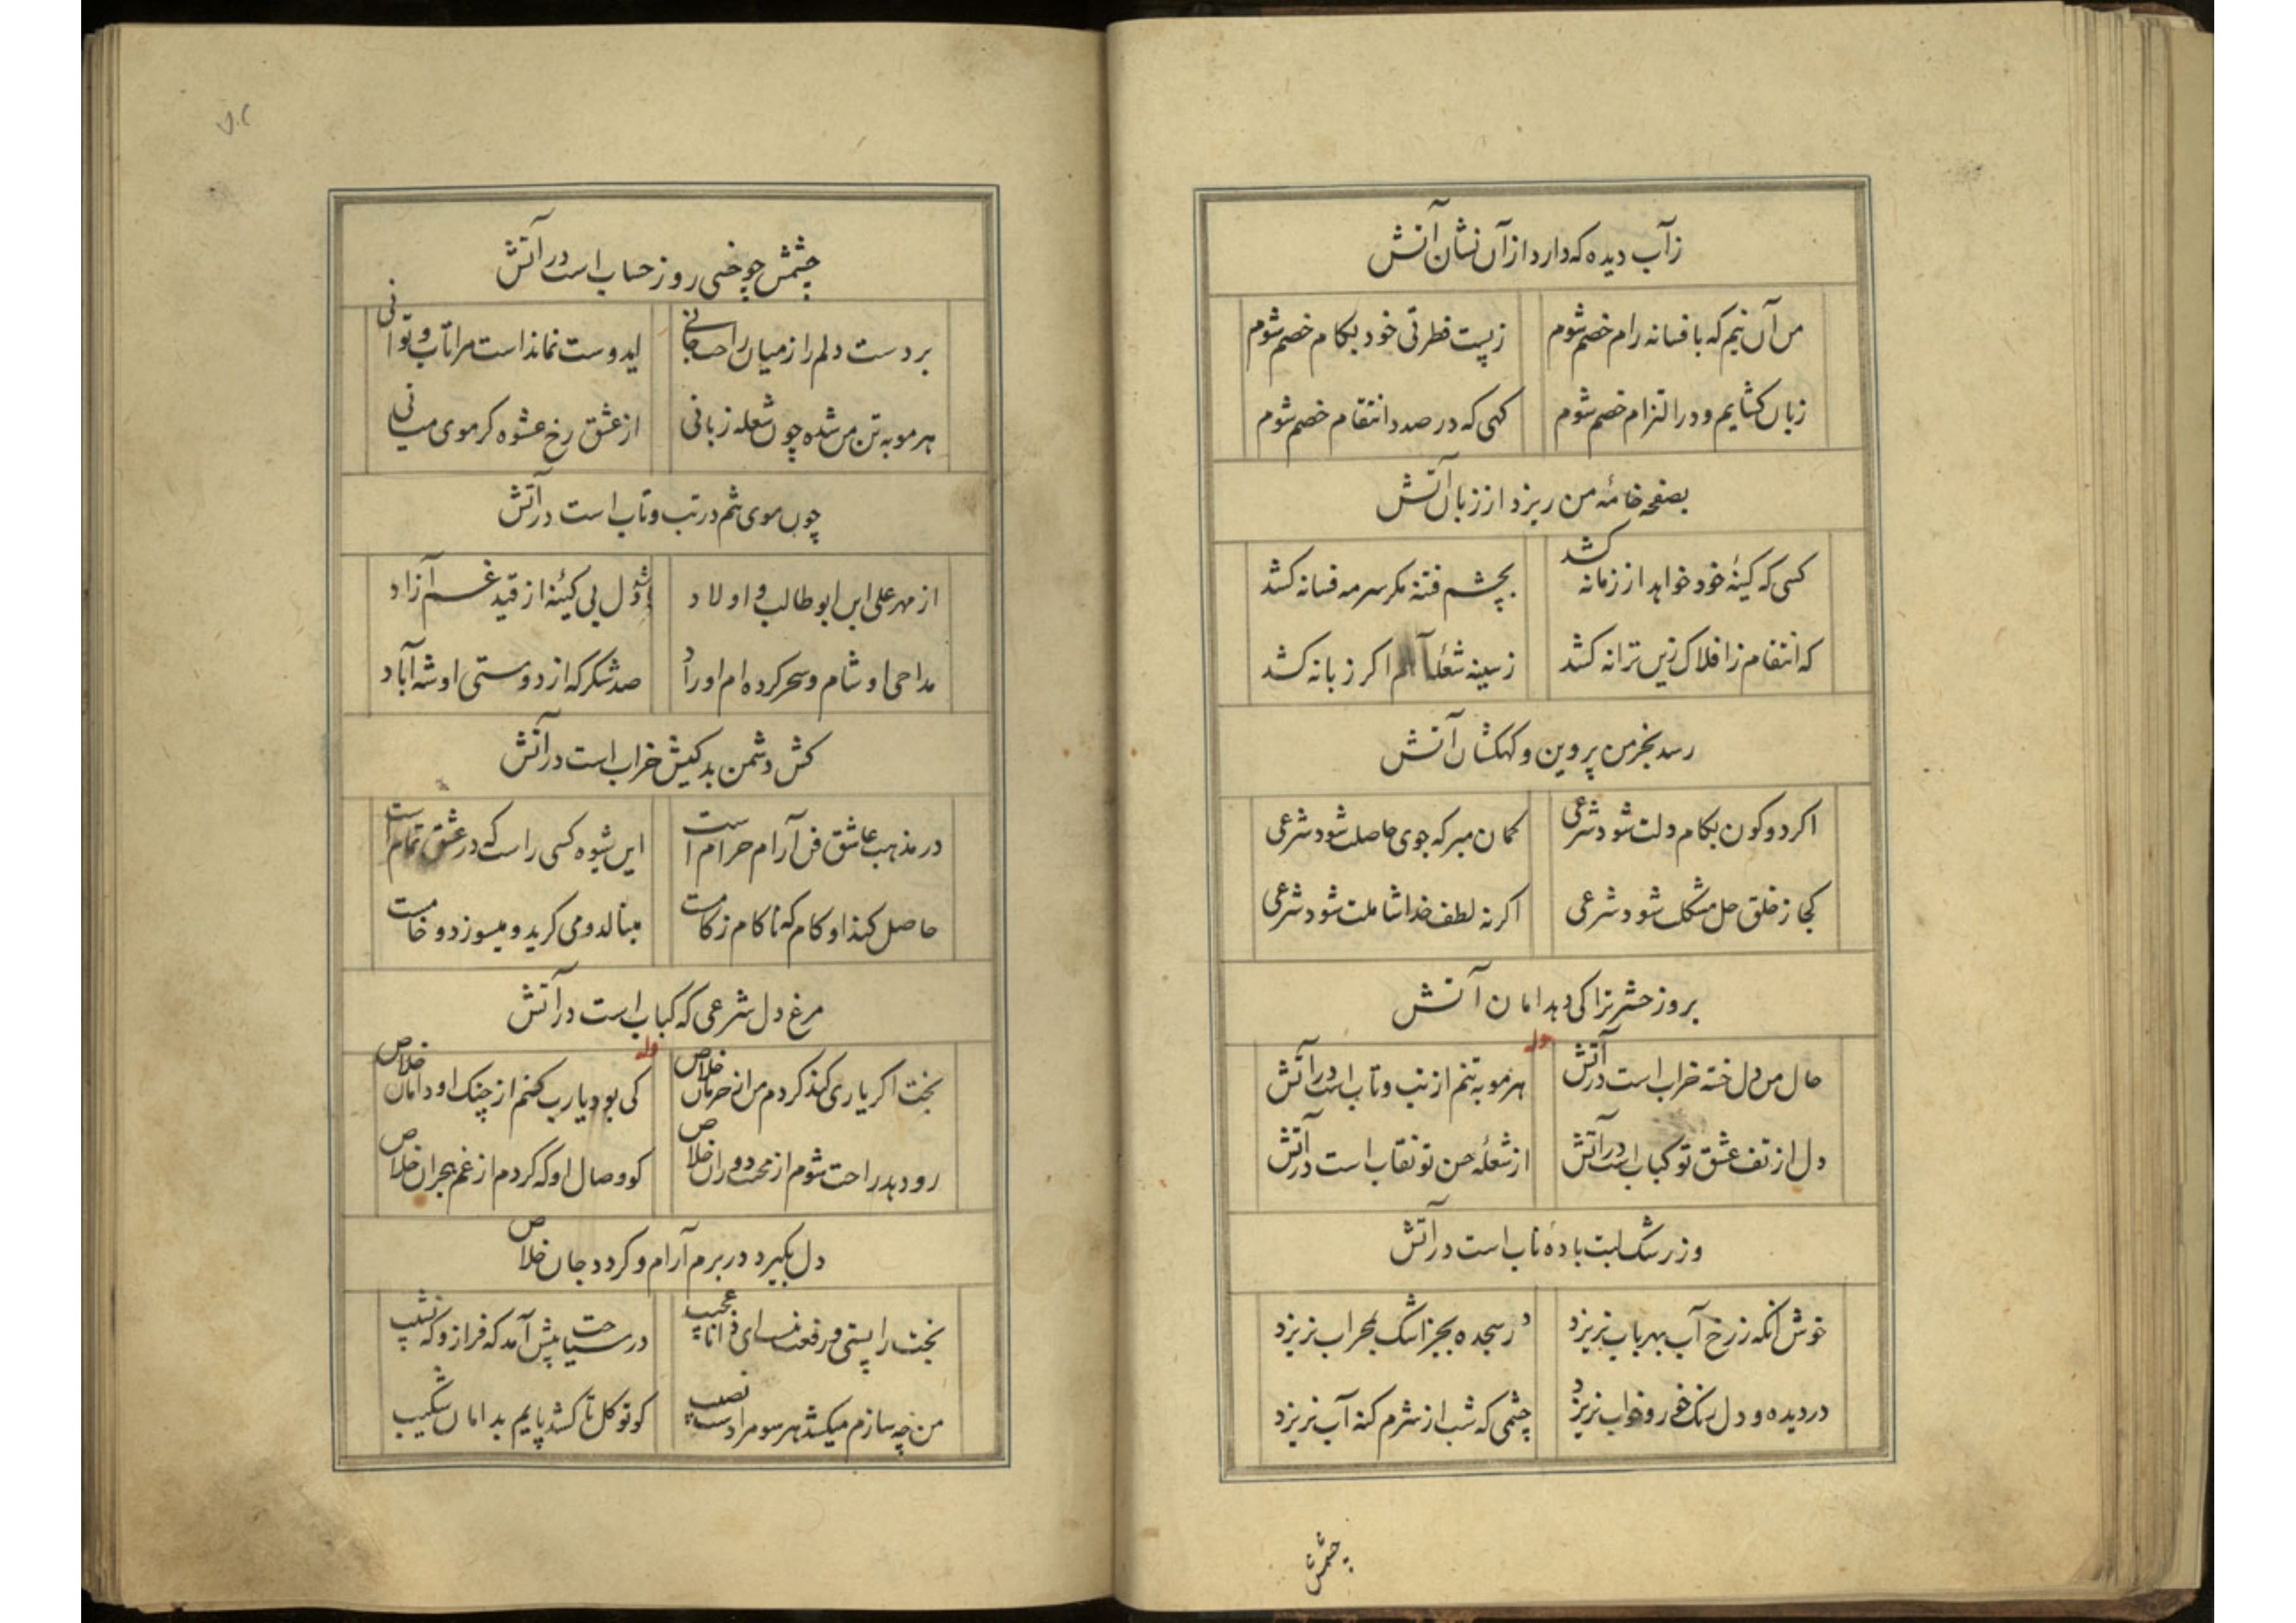 زآب دیده که دارد ازآن نشان آتش
من آن نیم که بافسانه رام خصم شوم
زپست فطرتی خود بکام خصم شوم
زبان کشایم و در التزام خصم شوم
کهی که در صدد انتقام خصم شوم
بصفحه خامهٔ من ریزد از زبان آتش
کسی که کینهٔ خود خواهد از زمانه کشد
بچشم فتنه مکر سرمه فسانه کشد
که انتقام ز افلاک زین ترانه کشد
زسینه شعلهٔ آهم اکر زبانه کشد
رسد بخرمن پروین و کهکشان آتش
اکر دو کون بکام دلت شود شرعی
کمان مبر که جوی حاصلت شود شرعی
کجا ز خلق حل مشکل شود شرعی
اکر نه لطف خدا شاملت شود شرعی
بروز حشر ترا کی دهد امان آتش
وله
حال من دل خسته خراب است درآتش
هر مو به تنم از تب و تاب است درآتش
دل از تف عشق تو کباب است درآتش
از شعلهٔ حسن تو نقاب است درآتش
وز رشک لبت بادهٔ ناب است درآتش
خوش آنکه ز رخ آب بهر باب نریزد
در سجده بجز اشک بمحراب نریزد
در دیده و دل رنک خور و خواب نریزد
چشمی که شب از شرم کنه آب نریزد
چشمش
چشمش چو خسی روز حساب است درآتش
بردست دلم را ز میان راحت جانی
ایدوست نماندا‌ست مرا تاب و توانی
هر مو به تن من شده چون شعله زبانی
از عشق رخ عشوه کر موی میانی
چون موی تنم در تب و تاب است درآتش
از مهر علی ابن ابوطالب و اولاد
شد دل بی کینه از قید غم آزاد
مداحی او شام و سحر کرده‌ام اوراد
صد شکر که از دوستی او شده آباد
کش دشمن بدکیش خراب است درآتش
در مذهب عاشق فن آرام حرام است
این شیوه کسی راست که در عشق تمام است
حاصل کند او کام که ناکام ز کامست
مینالد و می کرید و میسوزد و خامست
مرغ دل شرعی که کباب است درآتش
وله
بخت اکر یاری کند کردم من از حرمان خلاص
کی بود یارب کنم از چنک او دامان خلاص
رو دهد راحت شوم از محنت دوران خلاص
کو وصال او که کردم از غم هجران خلاص
دل بکیرد در برم آرام و کردد جان خلاص
بخت را پستی و رفعت
در سیاحت پیش آمد که فراز و که نشیب
من چه سازم میکشد هر سو مرا دست نصیب
کو توکل تا کشد پایم بدامان شکیب